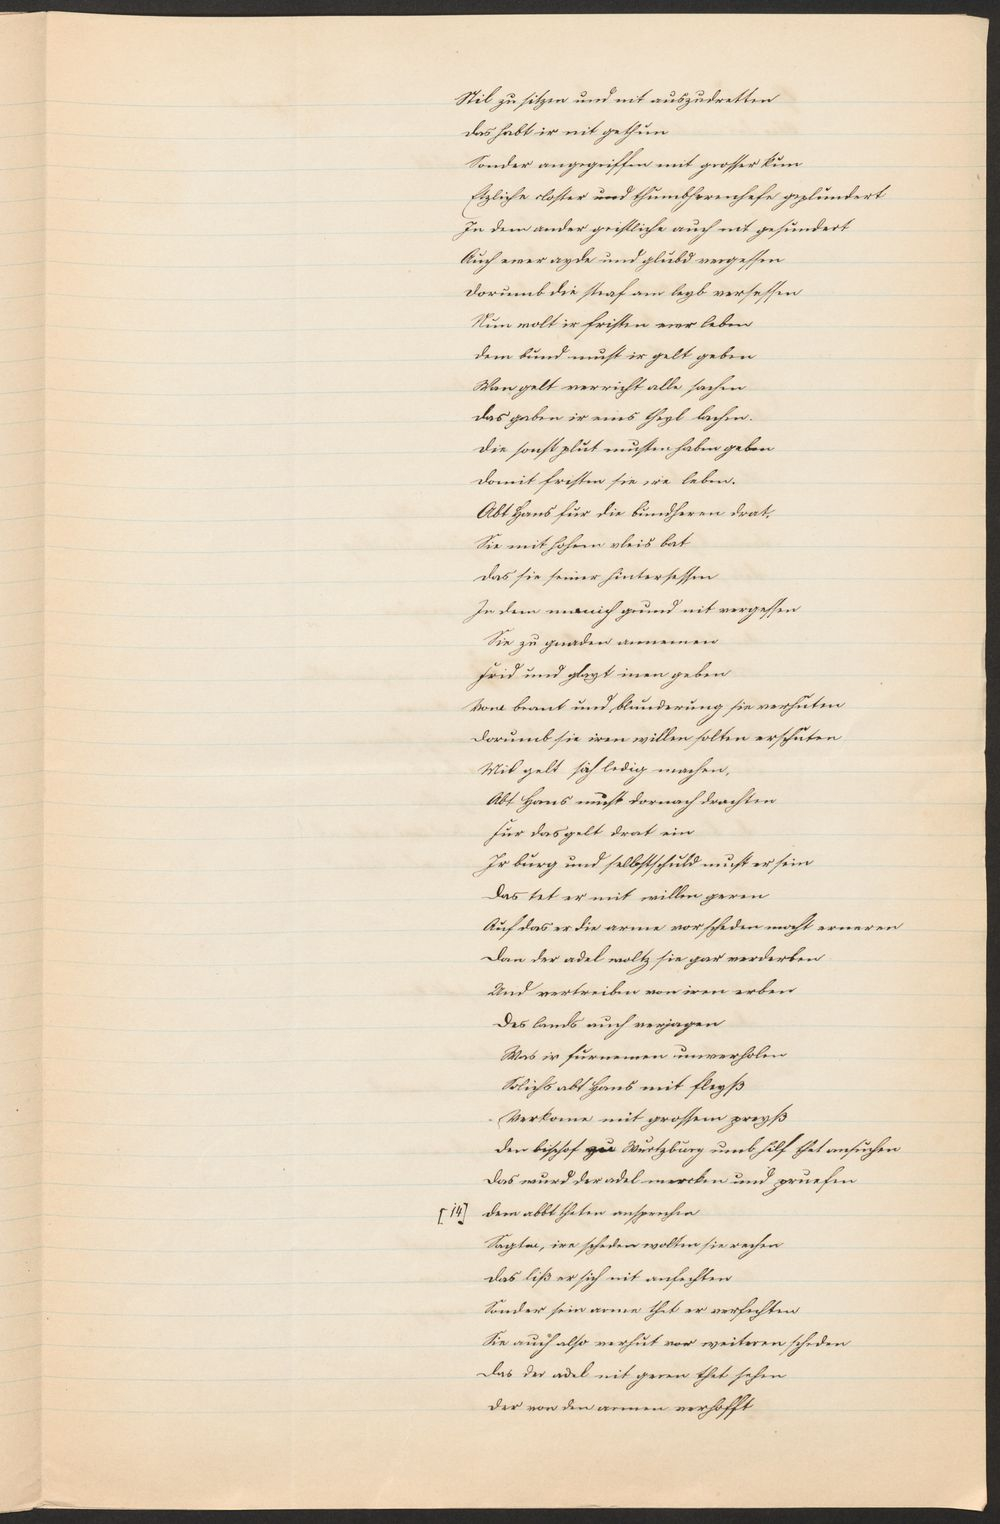 Stil zu sitzen und nit auszudretten
das habt ir nit gethun
Sonder angegriffen mit grosser kun
Etzliche closter und thumbherenhefe geplundert
In dem ander geistliche auch nit gesundert
Auch ewer ayde und glubd vergessen
Dorumb die straf am leyb versessen
Nun wolt ir fristen ewr leben
dem bund must ir gelt geben
Wan gelt verricht alle sachen
das gaben ir eins theyl lachen.
die sonst plut musten haben geben
domit fristen sie ire leben.
Abt Hans fur die bundheren drat.
Sie mit hohem vleis bat
das sie seiner hintersessen
In dem manich grund nit vergessen
Sie zu gnaden annemen
frid und glayt inen geben
Vom brant und blunderung sie verhuten
Dorumb sie iren willen solten erschuten
Mit gelt sich ledig machen,
Abt Hans must dornach drachten
fur das gelt drat ein
Ir burg und selbstschuld must er sein
Das tet er mit willen geren
Auf das er die arme vor scheden mocht erneren
Dan der adel woltz sie gar verderben
Und vertreiben von iren erben
Des lands auch verjagen
Was ir furnemen unverholen
Solichs abt Hans mit fleyß
Verkome mit grossem preyß
den bischof zu Wurtzburg umb hilf thet ansuchen
Das wurd der adel mercken und pruefen
[14] dem abbt theten ansprechen
Sagten, ire scheden wolten sie rechen
das liß er sich nit anfechten
Sonder sein arme thet er verfechten
Sie auch also verhut vor weiteren scheden
Das der adel nit geren thet sehen
der von den armen verhofft